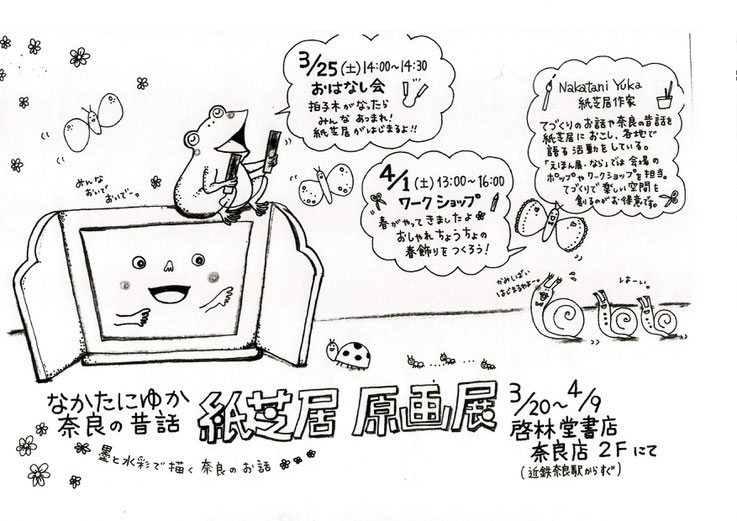 3/25(土)14:00〜14:30
おはなし会
拍子木がなったら
みんなあつまれ!
紙芝居がはじまるよ!!
Nakatani Yuka
紙芝居作家
てづくりのお話や奈良の昔話を
紙芝居におこし、各地で
語る活動をしている。
「えほん展・なら」では会場の
ポップやワークショップを担当。
てづくりで楽しい空間を
創るのがお得意です。
4/1(土)13:00〜16:00
ワークショップ
春がやってきましたよ
おしゃれちょうちょの
春飾りをつくろう!
みんな
おいで
おいでー。
かみしばい
はじまるわよー。
はーい。
なかたにゆか
奈良の昔話
紙芝居 原画展
3/20〜4/9
啓林堂書店
奈良店 2Fにて
(近鉄奈良駅からすぐ)
墨と水彩で描く奈良のお話